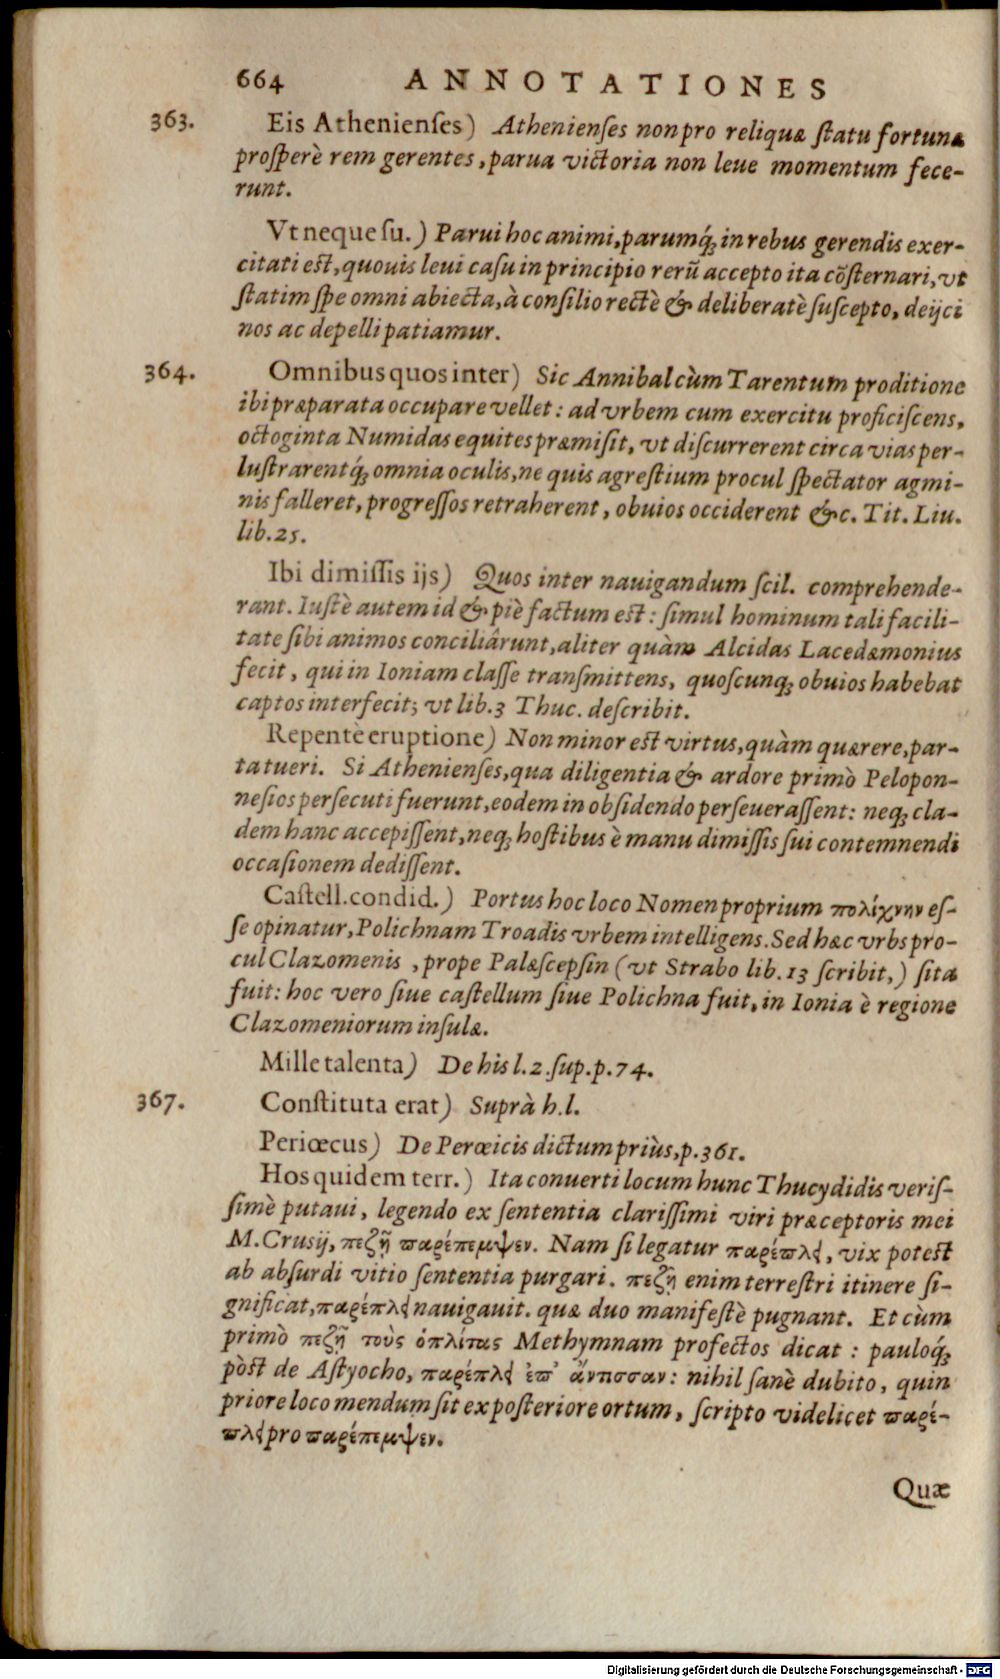 664 ANNOTATIONES
363. Eis Athenienſes) Athenienſes non pro reliquæ ſtatu fortunæ
proſperè rem gerentes, parua victoria non leue momentum fece-
runt.
Vt neque ſu.) Parui hoc animi, parumq́; in rebus gerendis exer-
citati eſt, quouis leui caſu in principio rerũ accepto ita cõſternari, vt
ſtatim ſpe omni abiecta, à conſilio rectè & deliberatè ſuſcepto, deijci
nos ac depelli patiamur.
364. Omnibus quos inter) Sic Annibal cùm Tarentum proditione
ibi præparata occupare vellet: ad vrbem cum exercitu proficiſcens,
octoginta Numidas equites præmiſit, vt diſcurrerent circa vias per-
luſtrarentq́; omnia oculis, ne quis agreſtium procul ſpectator agmi-
nis falleret, progreſſos retraherent, obuios occiderent &c. Tit. Liu.
lib. 25.
Ibi dimiſſis ijs) Quos inter nauigandum ſcil. comprehende-
rant. Iuſtè autem id & piè factum eſt: ſimul hominum tali facili-
tate ſibi animos conciliârunt, aliter quàm Alcidas Lacedæmonius
fecit, qui in Ioniam claſſe tranſmittens, quoſcunq; obuios habebat
captos interfecit; vt lib. 3 Thuc. deſcribit.
Repentè eruptione) Non minor eſt virtus, quàm quærere, par-
ta tueri. Si Athenienſes, qua diligentia & ardore primò Pelopon-
neſios perſecuti fuerunt, eodem in obſidendo perſeueraſſent: neq; cla-
dem hanc accepiſſent, neq; hoſtibus è manu dimiſſis ſui contemnendi
occaſionem dediſſent.
Caſtell. condid.) Portus hoc loco Nomen proprium πολίχνην eſ-
ſe opinatur, Polichnam Troadis vrbem intelligens. Sed hæc vrbs pro-
cul Clazomenis, prope Palæſcepſin (vt Strabo lib. 13 ſcribit,) ſita
fuit: hoc vero ſiue caſtellum ſiue Polichna fuit, in Ionia è regione
Clazomeniorum inſulæ.
Mille talenta) De his l. 2. ſup. p. 74.
367. Conſtituta erat) Suprà h. l.
Periœcus) De Perœicis dictum priùs, p. 361.
Hos quidem terr.) Ita conuerti locum hunc Thucydidis veriſ-
ſimè putaui, legendo ex ſententia clariſſimi viri præceptoris mei
M. Cruſij, πεζῇ παρέπεμψεν. Nam ſi legatur παρέπλει, vix poteſt
ab abſurdi vitio ſententia purgari. πεζῇ enim terreſtri itinere ſi-
gnificat, παρέπλει nauigauit. quæ duo manifeſtè pugnant. Et cùm
primò πεζῇ τοὺς ὁπλίτας Methymnam profectos dicat: pauloq́;
pòst de Aſtyocho, παρέπλει ἐπ' ἄντισσαν: nihil ſanè dubito, quin
priore loco mendum ſit ex poſteriore ortum, ſcripto videlicet παρέ-
πλει pro παρέπεμψεν.
Quæ
Digitalisierung gefördert durch die Deutsche Forschungsgemeinschaft - DFG